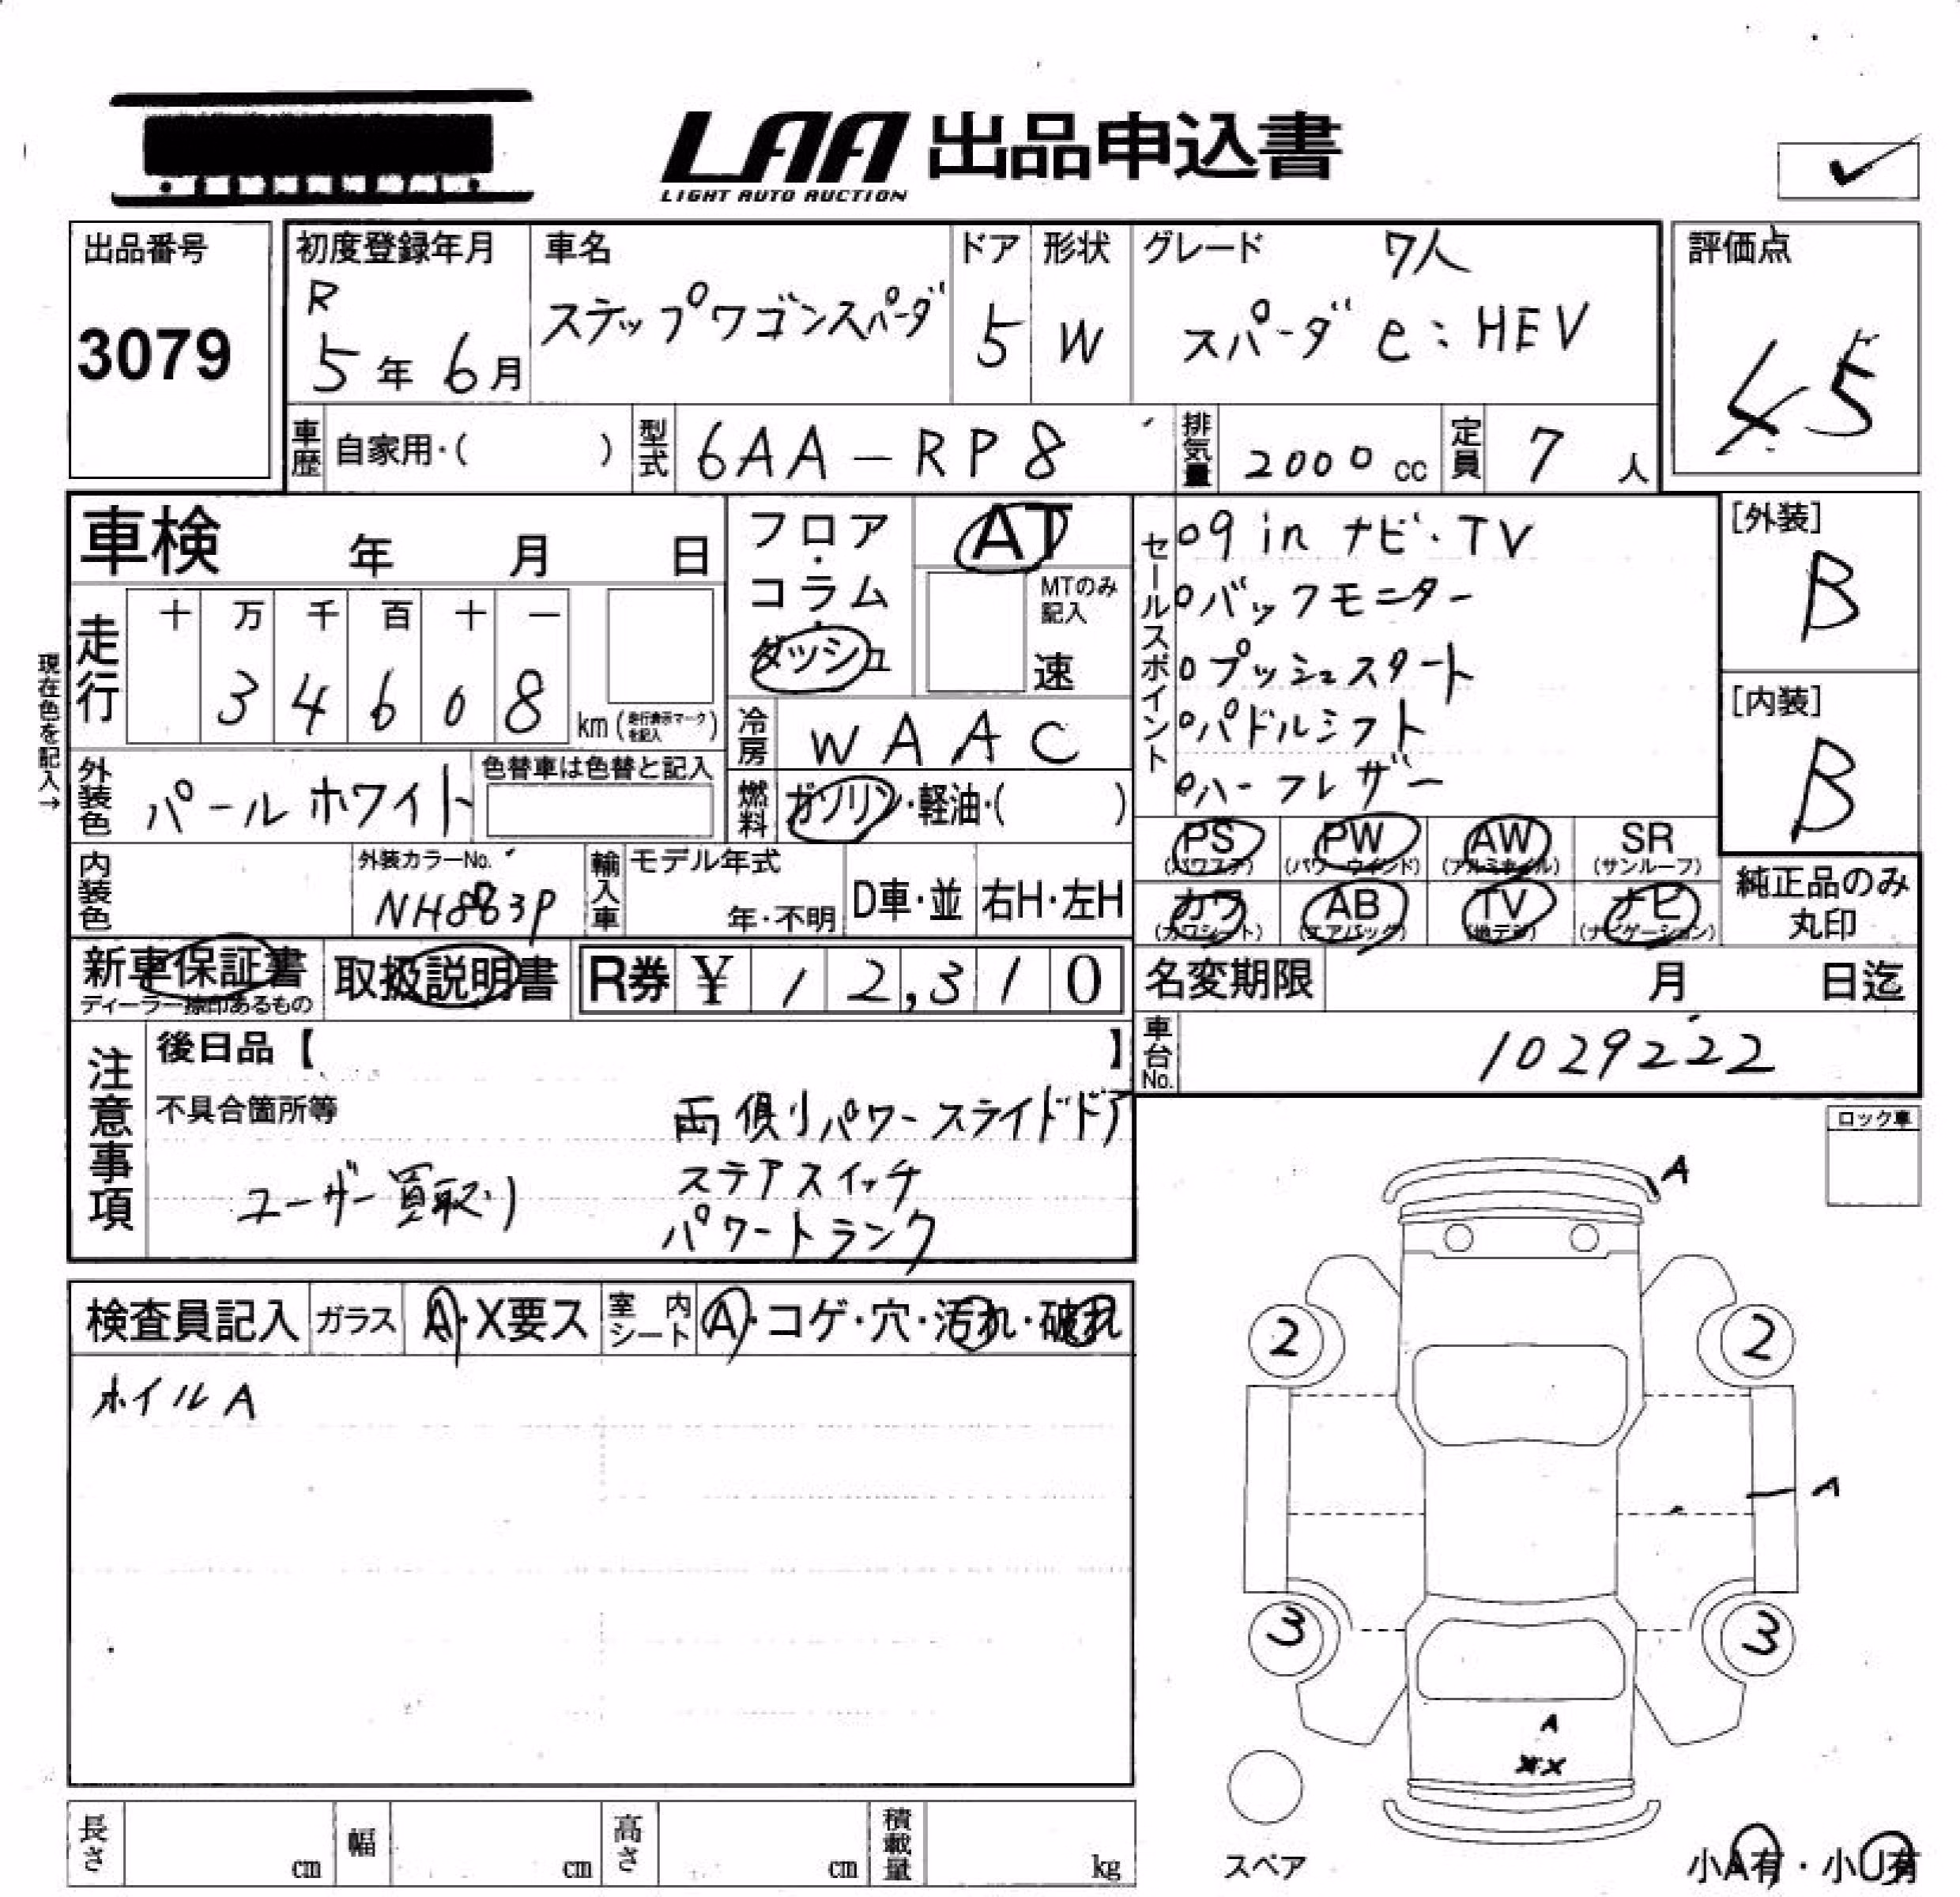 LAA 出品申込書
LIGHT AUTO AUCTION
出品番号
3079
初度登録年月
R
5年 6月
車名
ステップワゴンスパーダ
ドア
5
形状
W
グレード 7人
スパーダ e:HEV
評価点
4.5
車歴 自家用・( )
型式 6AA-RP8
排気量 2000 cc
定員 7 人
車検 年 月 日
フロア・コラム・ダッシュ
AT
MTのみ記入
速
セールスポイント
09inナビ・TV
0バックモニター
0プッシュスタート
0パドルシフト
0ハーフレザー
[外装]
B
[内装]
B
現在色を記入→
走行
十 万 千 百 十 一
3 4 6 0 8
km (走行表示マークを記入)
冷房 WAAC
外装色 パールホワイト
色替車は色替と記入
燃料 ガソリン・軽油・( )
PS (パワステ)
PW (パワーウインド)
AW (アルミホイル)
SR (サンルーフ)
カワ (カワシート)
AB (エアバッグ)
TV (地デジ)
ナビ (ナビゲーション)
純正品のみ
丸印
内装色
外装カラーNo.
NH883P
輸入車
モデル年式
年・不明
D車・並
右H・左H
新車保証書
ディーラー捺印あるもの
取扱説明書
R券 ¥ 12,310
名変期限 月 日迄
車台No. 1029222
注意事項
後日品【 】
不具合箇所等
両側パワースライドドア
ユーザー買取り
ステアスイッチ
パワートランク
ロック車
A
検査員記入
ガラス A・X要ス
室内シート A・コゲ・穴・汚れ・破れ
ホイルA
2
2
A
3
3
A
XX
スペア
長さ cm
幅 cm
高さ cm
積載量 kg
小A有・小U有